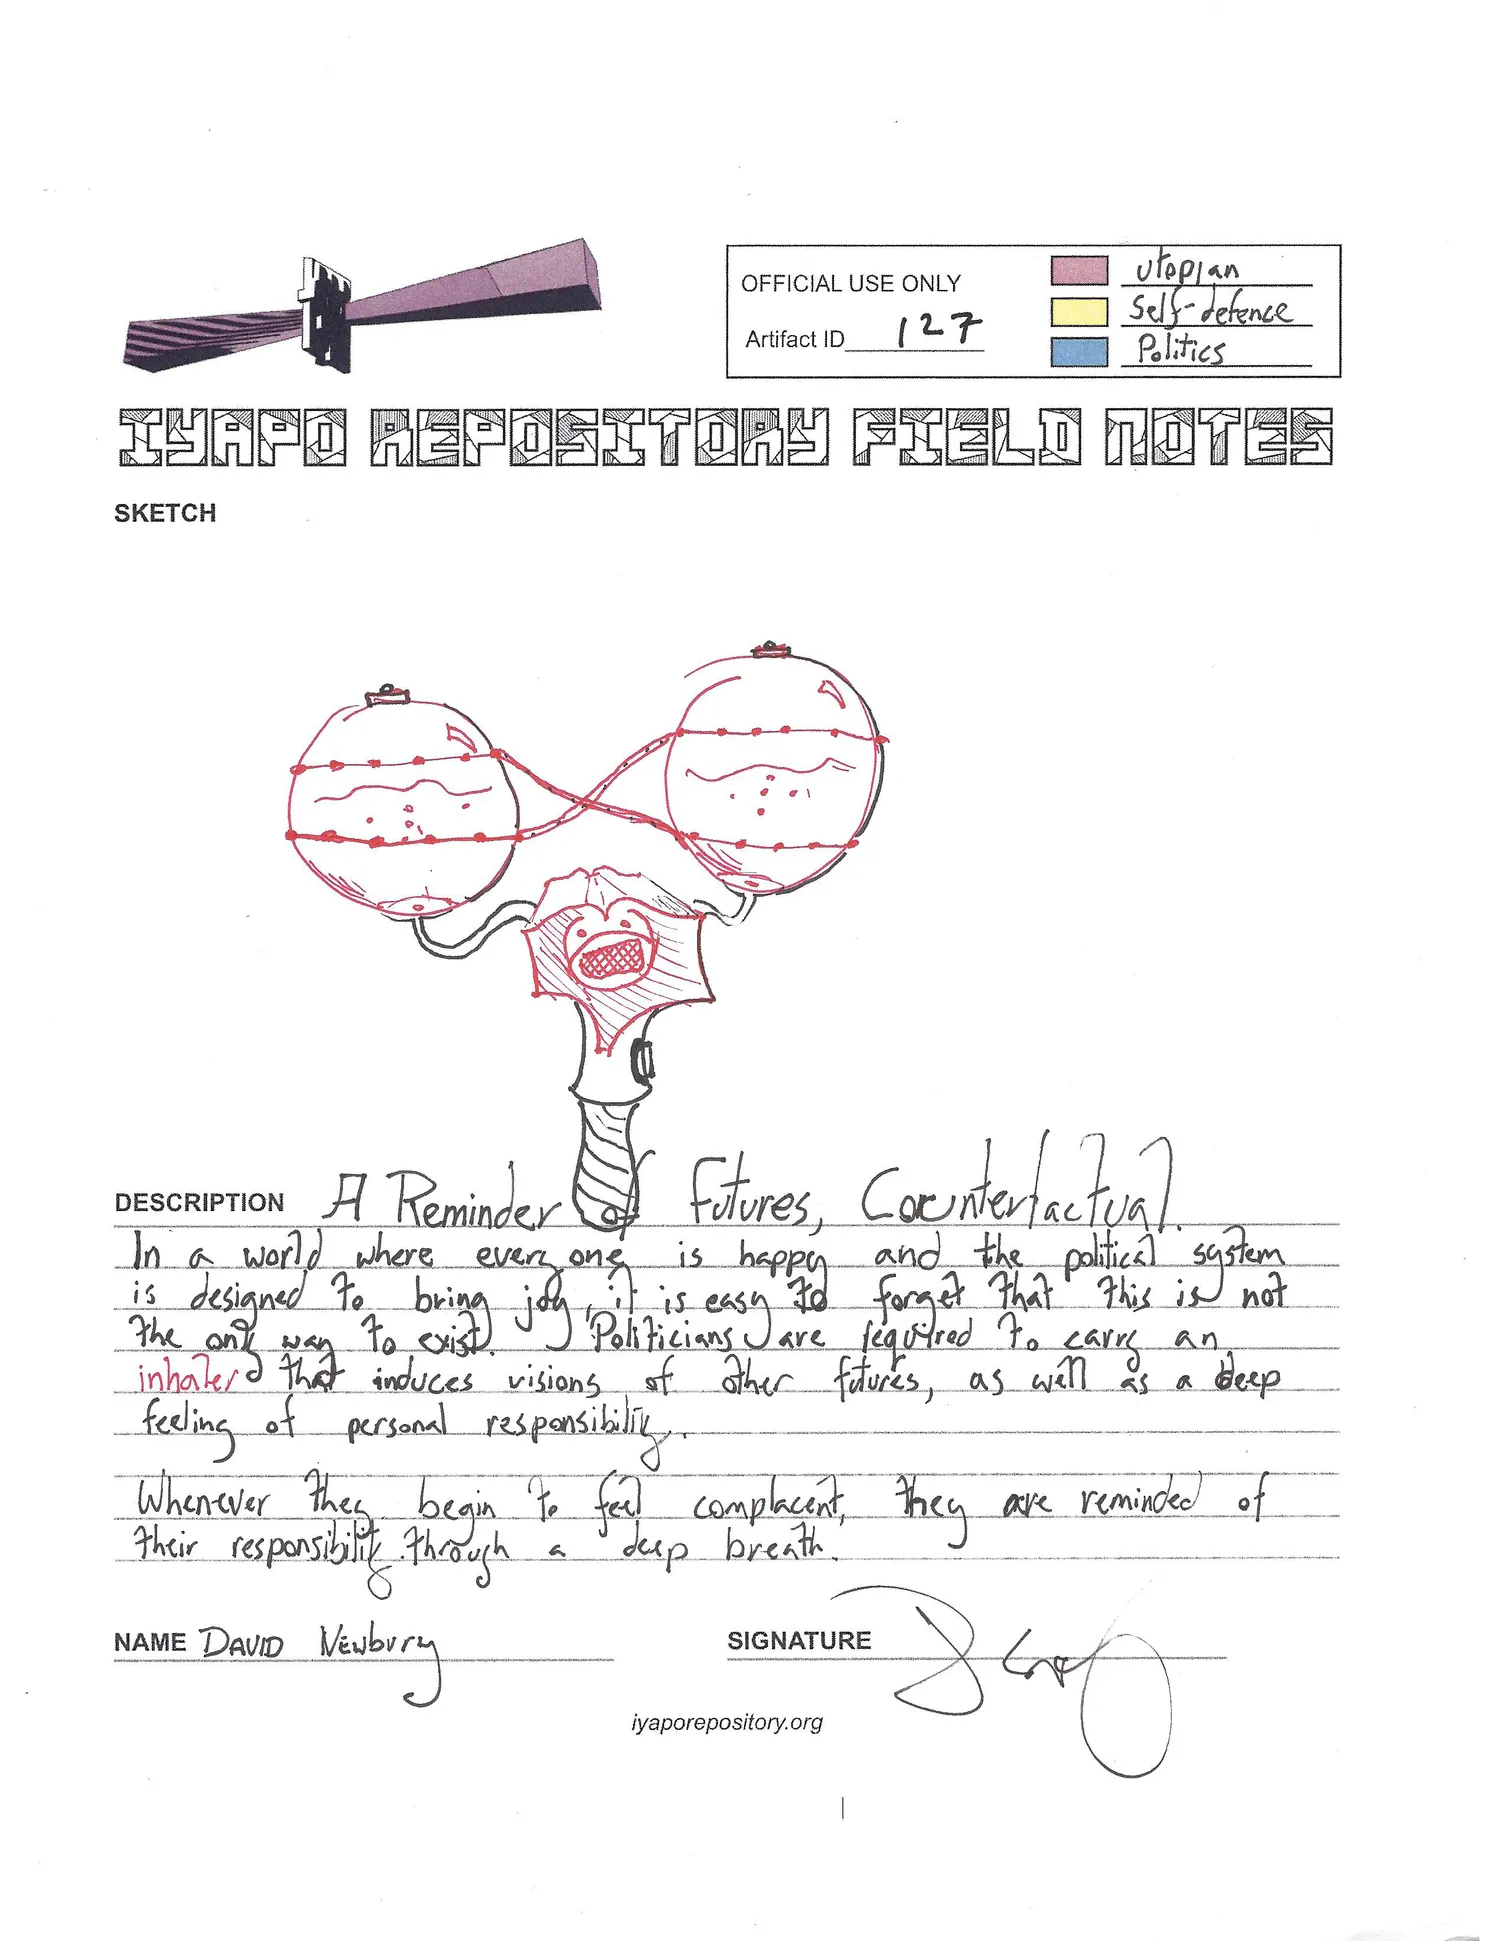 OFFICIAL USE ONLY
Artifact ID 127
Utopian
Self-defence
Politics
IYAPO REPOSITORY FIELD NOTES
SKETCH
DESCRIPTION A Reminder of Futures, Counterfactual.
In a world where everyone is happy and the political system
is designed to bring joy, it is easy to forget that this is not
the only way to exist. Politicians are required to carry an
inhaler that induces visions of other futures, as well as a deep
feeling of personal responsibility.
Whenever they begin to feel complacent, they are reminded of
their responsibility through a deep breath.
NAME DAVID Newbury
SIGNATURE
iyaporepository.org